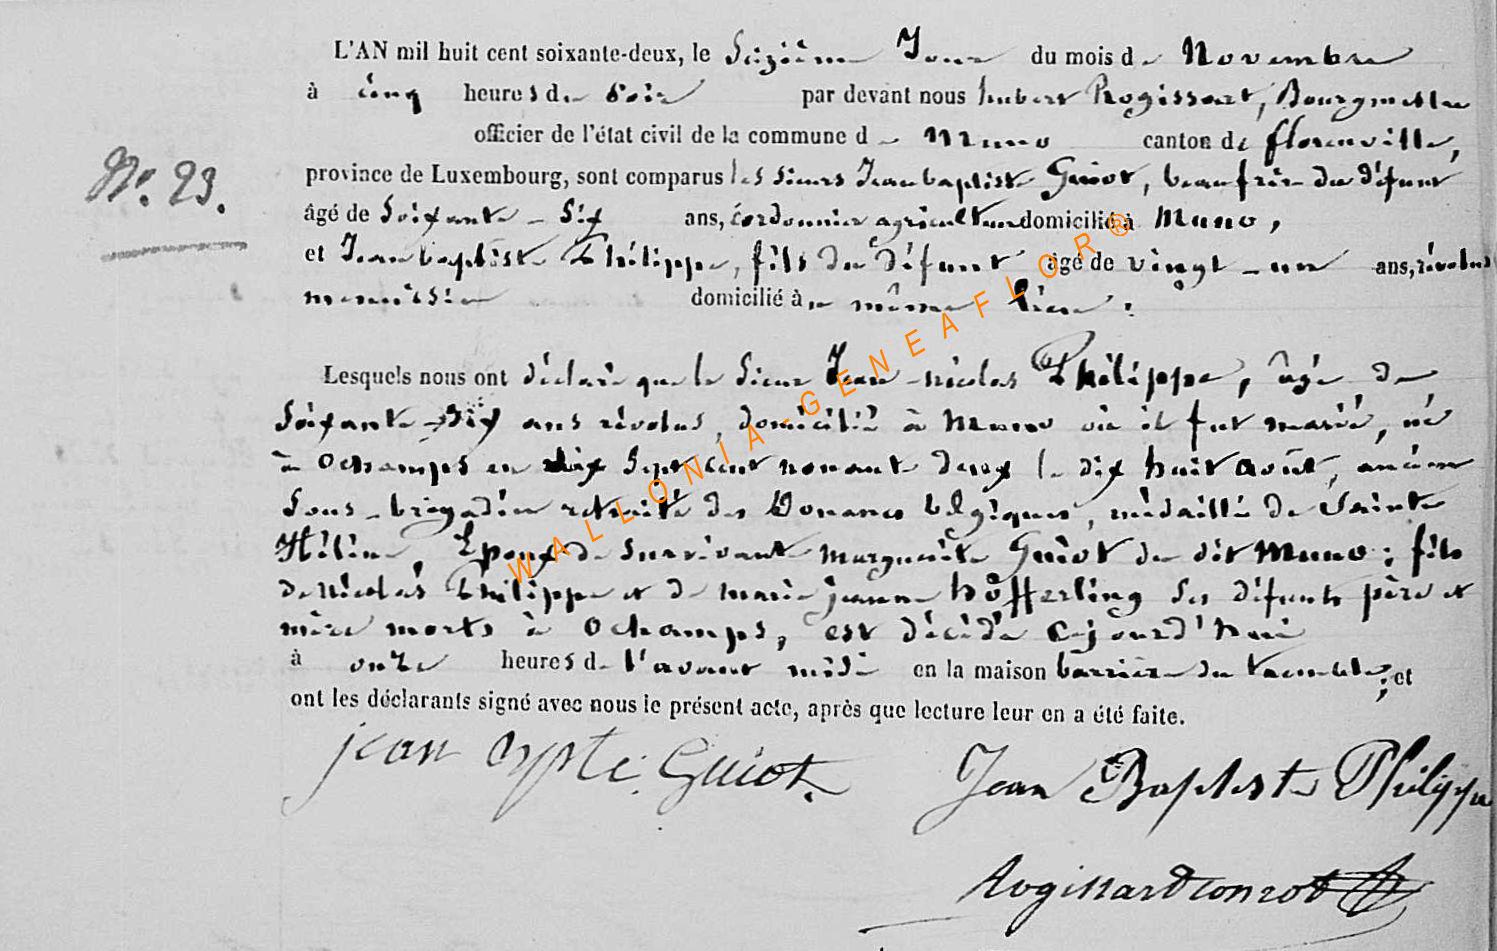 L'AN mil huit cent soixante-deux, le Seizième Jour du mois de Novembre
à cinq heures du Soir par devant nous hubert Rogissart, Bourgmestre
officier de l'état civil de la commune de Muno canton de florenville,
province de Luxembourg, sont comparus les Sieurs Jean baptiste Guiot, beaufrère du défunt
N°. 23.
âgé de Soixante - Six ans, cordonnier agriculteur domicilié à Muno,
et Jean baptiste Philippe, fils du défunt âgé de vingt - un ans, révolus
menuisier domicilié à même lieu :
Lesquels nous ont déclaré que le Sieur Jean - nicolas Philippe, âgé de
Soixante - Dix ans révolus, domicilié à Muno où il fut marié, né
à Ochamps en dix Sept cent nonante deux le dix huit Août, ancien
Sous - brigadier retraité des Douanes belgiques, médaillé de Sainte
Hélène Epoux de Survivante Marguerite Guiot du dit Muno ; fils
de Nicolas Philippe et de marie jeanne höfferling Ses défunts père et
mère morts à Ochamps, est décédé Cejourd'hui
à onze heures de l'avant midi en la maison barrière du ; et
ont les déclarants signé avec nous le présent acte, après que lecture leur en a été faite.
jean bpte Guiot.
Jean Baptiste Philippe
Rogissart Conrot
WALLONIA-GENEAFLOR®